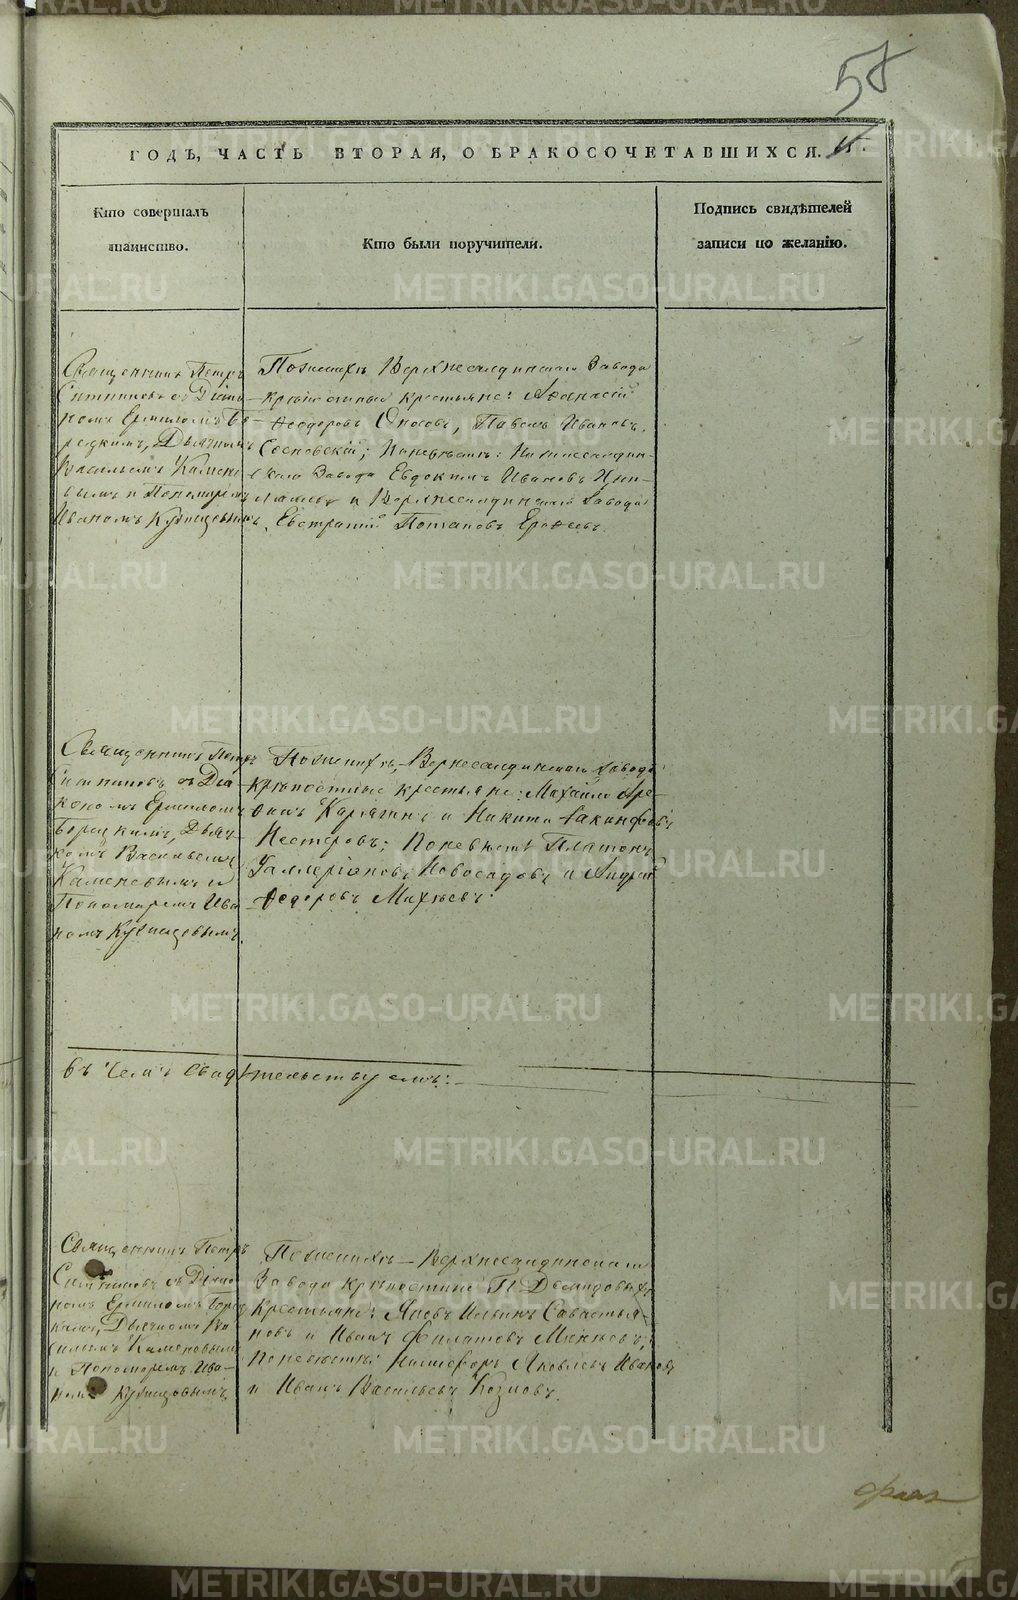 58
ГОДЪ, ЧАСТЬ ВТОРАЯ, О БРАКОСОЧЕТАВШИХСЯ.
Кто совершалъ
таинство.
Кто были поручители.
Подпись свидѣтелей
записи по желанію.
Священникъ Петръ
Ситниковъ съ Діако-
номъ Ермиломъ Бо-
рецкимъ, Дьячкомъ
Васильемъ Камено-
вымъ и Пономаремъ
Иваномъ Кузнецовымъ.
Поженихѣ Верхнесалдинскаго Завода
крѣпостные крестьяне: Афанасій
Ѳедоровъ Павелъ Ивановъ
Сосновскій; Поневѣстѣ: Нижнесалдин-
скаго Завода Евдокимъ Ивановъ
и Верхнесалдинскаго Завода
Евстратій Потаповъ Ерофеевъ.
Священникъ Петръ
Ситниковъ съ Діа-
кономъ Ермиломъ
Борецкимъ, Дьяч-
комъ Васильемъ
Каменовымъ и
Пономаремъ Ива-
номъ Кузнецовымъ.
Поженихѣ, Верхнесалдинскаго Завода
крѣпостные крестьяне: Михайло
Карягинъ и Никита
Нестеровъ; Поневѣстѣ Платонъ
Валлеріановъ Новосадовъ и Андрей
Ѳедоровъ Михѣевъ.
въ чемъ свидѣтельствуемъ:
Священникъ Петръ
Ситниковъ съ Діако-
номъ Ермиломъ Борец-
кимъ, Дьячкомъ Ва-
сильемъ Каменовымъ
и Пономаремъ Ива-
номъ Кузнецовымъ.
Поженихѣ – Верхнесалдинскаго
Завода крѣпостные Г. Демидовыхъ
крестьяне: Яковъ Ильинъ Савастья-
новъ и Иванъ Филатовъ
Поневѣстѣ: Никифоръ Яковлевъ Ивановъ
и Иванъ Васильевъ Козловъ.
METRIKI.GASO-URAL.RU